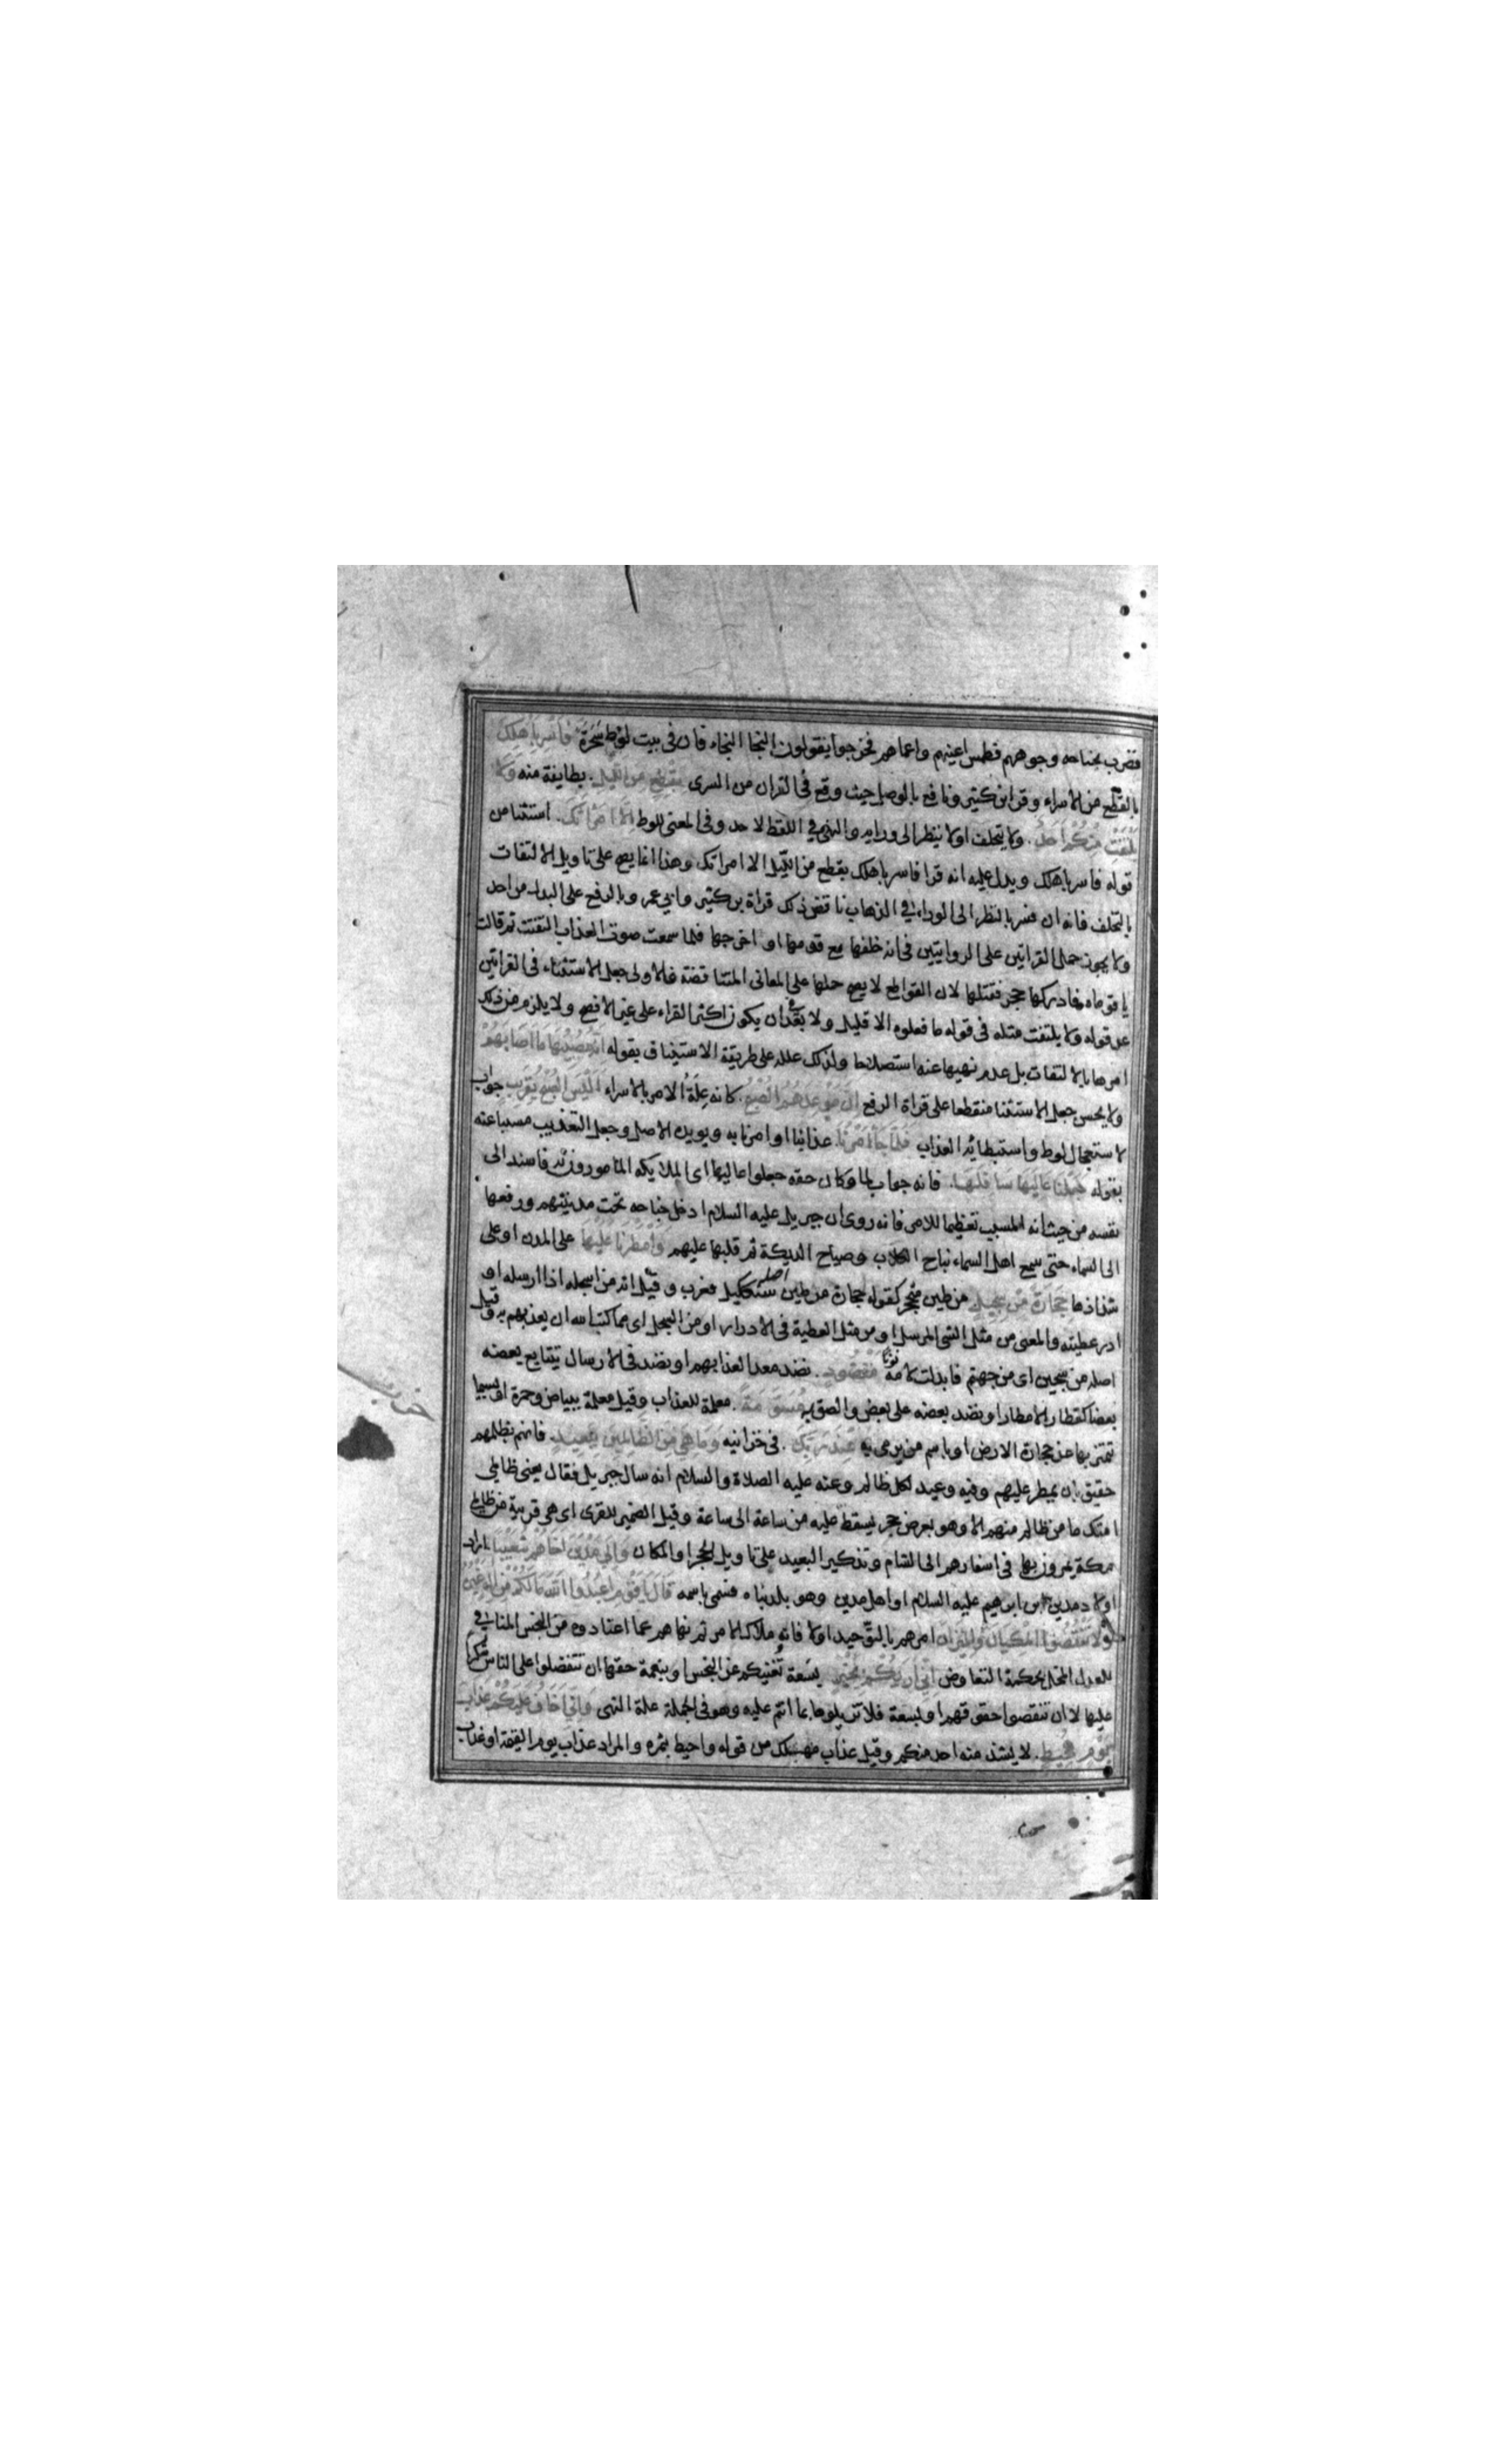 فضرب بجناحه وجوههم فطمس اعينهم واعماهم فخرجوا يقولون النجا النجاء فان في بيت لوط سحرة فاسر باهلك
بالقطع من الاسراء وقرا ابن كثير ونافع بالوصل حيث وقع في القران من السرى بقطع من الليل. بطايفة منه ولا
يلتفت منكم احد. ولا يتخلف اولا ينظر الى ورايه والنهي في اللفظ لاحد وفي المعنى للوط الا امراتك. استثنا من
قوله فاسر باهلك ويدل عليه انه قرا فاسر باهلك بقطع من الليل الا امراتك وهذا انما يصح على تاويل الالتفات
بالتخلف فانه ان فسر بالنظر الى الوراء في الذهاب ناقض ذلك قراة بن كثير وابي عمر وبالرفع على البدل من احد
ولا يجوز حمل القراتين على الروايتين في انه خلفها مع قومها او اخرجها فلما سمعت صوت العذاب التفتت ثم قالت
يا قوماه فادركها حجر فقتلها لان القواطع لا يصح حملها على المعانى المتناقضة فالاولى جعل الاستثناء في القراتين
عن قوله ولا يلتفت مثله في قوله ما فعلوه الا قليل ولا بعد في ان يكون اكثر القراء على غير الافصح ولا يلزم من ذلك
امرها بالالتفات بل عدم نهيها عنه استصلاحا ولذلك علله على طريقة الاستيناف بقوله انه مصيبها ما اصابهم
ولا يحسن جعل الاستثنا منقطعا على قراة الرفع ان موعدهم الصبح. كانه علة الامر بالاسراء اليس الصبح بقريب جواب
لاستعجال لوط واستبطائه العذاب فلما جاء امرنا. عذابنا او امرنا به ويويده الاصل وجعل التعذيب مسبباعنه
بقوله جعلنا عاليها سافلها. فانه جواب لما وكان حقه جعلوا عاليها اى الملايكه المامورون به فاسند الى
نفسه من حيث انه المسبب تعظيما للامر فانه روى ان جبريل عليه السلام ادخل جناحه تحت مدينتهم ورفعها
الى السماء حتى سمع اهل السماء نباح الكلاب وصياح الديكة ثم قلبها عليهم وامطرنا عليها على المدن او على
شذاذها حجارة من سجيل من طين متحجر كقوله حجارة من طين اصله سنككيل فعرب وقيل انه من اسجله اذا ارسله او
ادر عطيته والمعنى من مثل الشى المرسل او من مثل العطية فى الادرار او من السجل اى مما كتب الله ان يعذبهم به وقيل
اصله من سجين اى من جهنم فابدلت لامه نونا منضود. نضد معدا لعذابهم او نضد فى الارسال يتتابع بعضه
بعضا كقطار الامطار او نضد بعضه على بعض والصق به مسومة. معلمة للعذاب وقيل معلمة ببياض وحمرة او بسيما
تتميز بها عن حجارة الارض او باسم من يرمى به عند ربك. فى خزانيه وما هي من الظالمين ببعيد. فانهم بظلمهم
حقيق بان يمطر عليهم وفيه وعيد لكل ظالم وعنه عليه الصلاة والسلام انه سال جبريل فقال يعنى ظالمى
امتك ما من ظالم منهم الا وهو بعرض حجر يسقط عليه من ساعة الى ساعة وقيل الضمير للقرى اى هى قريبة من ظالمى
مكة يمرون بها فى اسفارهم الى الشام وتذكير البعيد على تاويل الحجر او المكان والى مدين اخاهم شعيبا اراد
اولاد مدين ابن ابرهيم عليه السلام او اهل مدين وهو بلد بناه فسمى باسمه قال يا قوم اعبدوا الله مالكم من اله غيره
ولا تنقصوا المكيال والميزان امرهم بالتوحيد اولا فانه ملاك الامر ثم نهاهم عما اعتادوه من البخس المنافي
للعدل المخل بحكمة التعاوض اني اريكم بخير بسعة تغنيكم عن البخس او بنعمة حقها ان تتفضلوا على الناس شكرا
عليها لا ان تنقصوا حقوقهم او بسعة فلا تزيلوها بما انتم عليه وهو فى الجملة علة النهى واني اخاف عليكم عذاب
يوم محيط. لا يشذ منه احد منكم وقيل عذاب مهلك من قوله واحيط بثمره والمراد عذاب يوم القيمة او عذاب